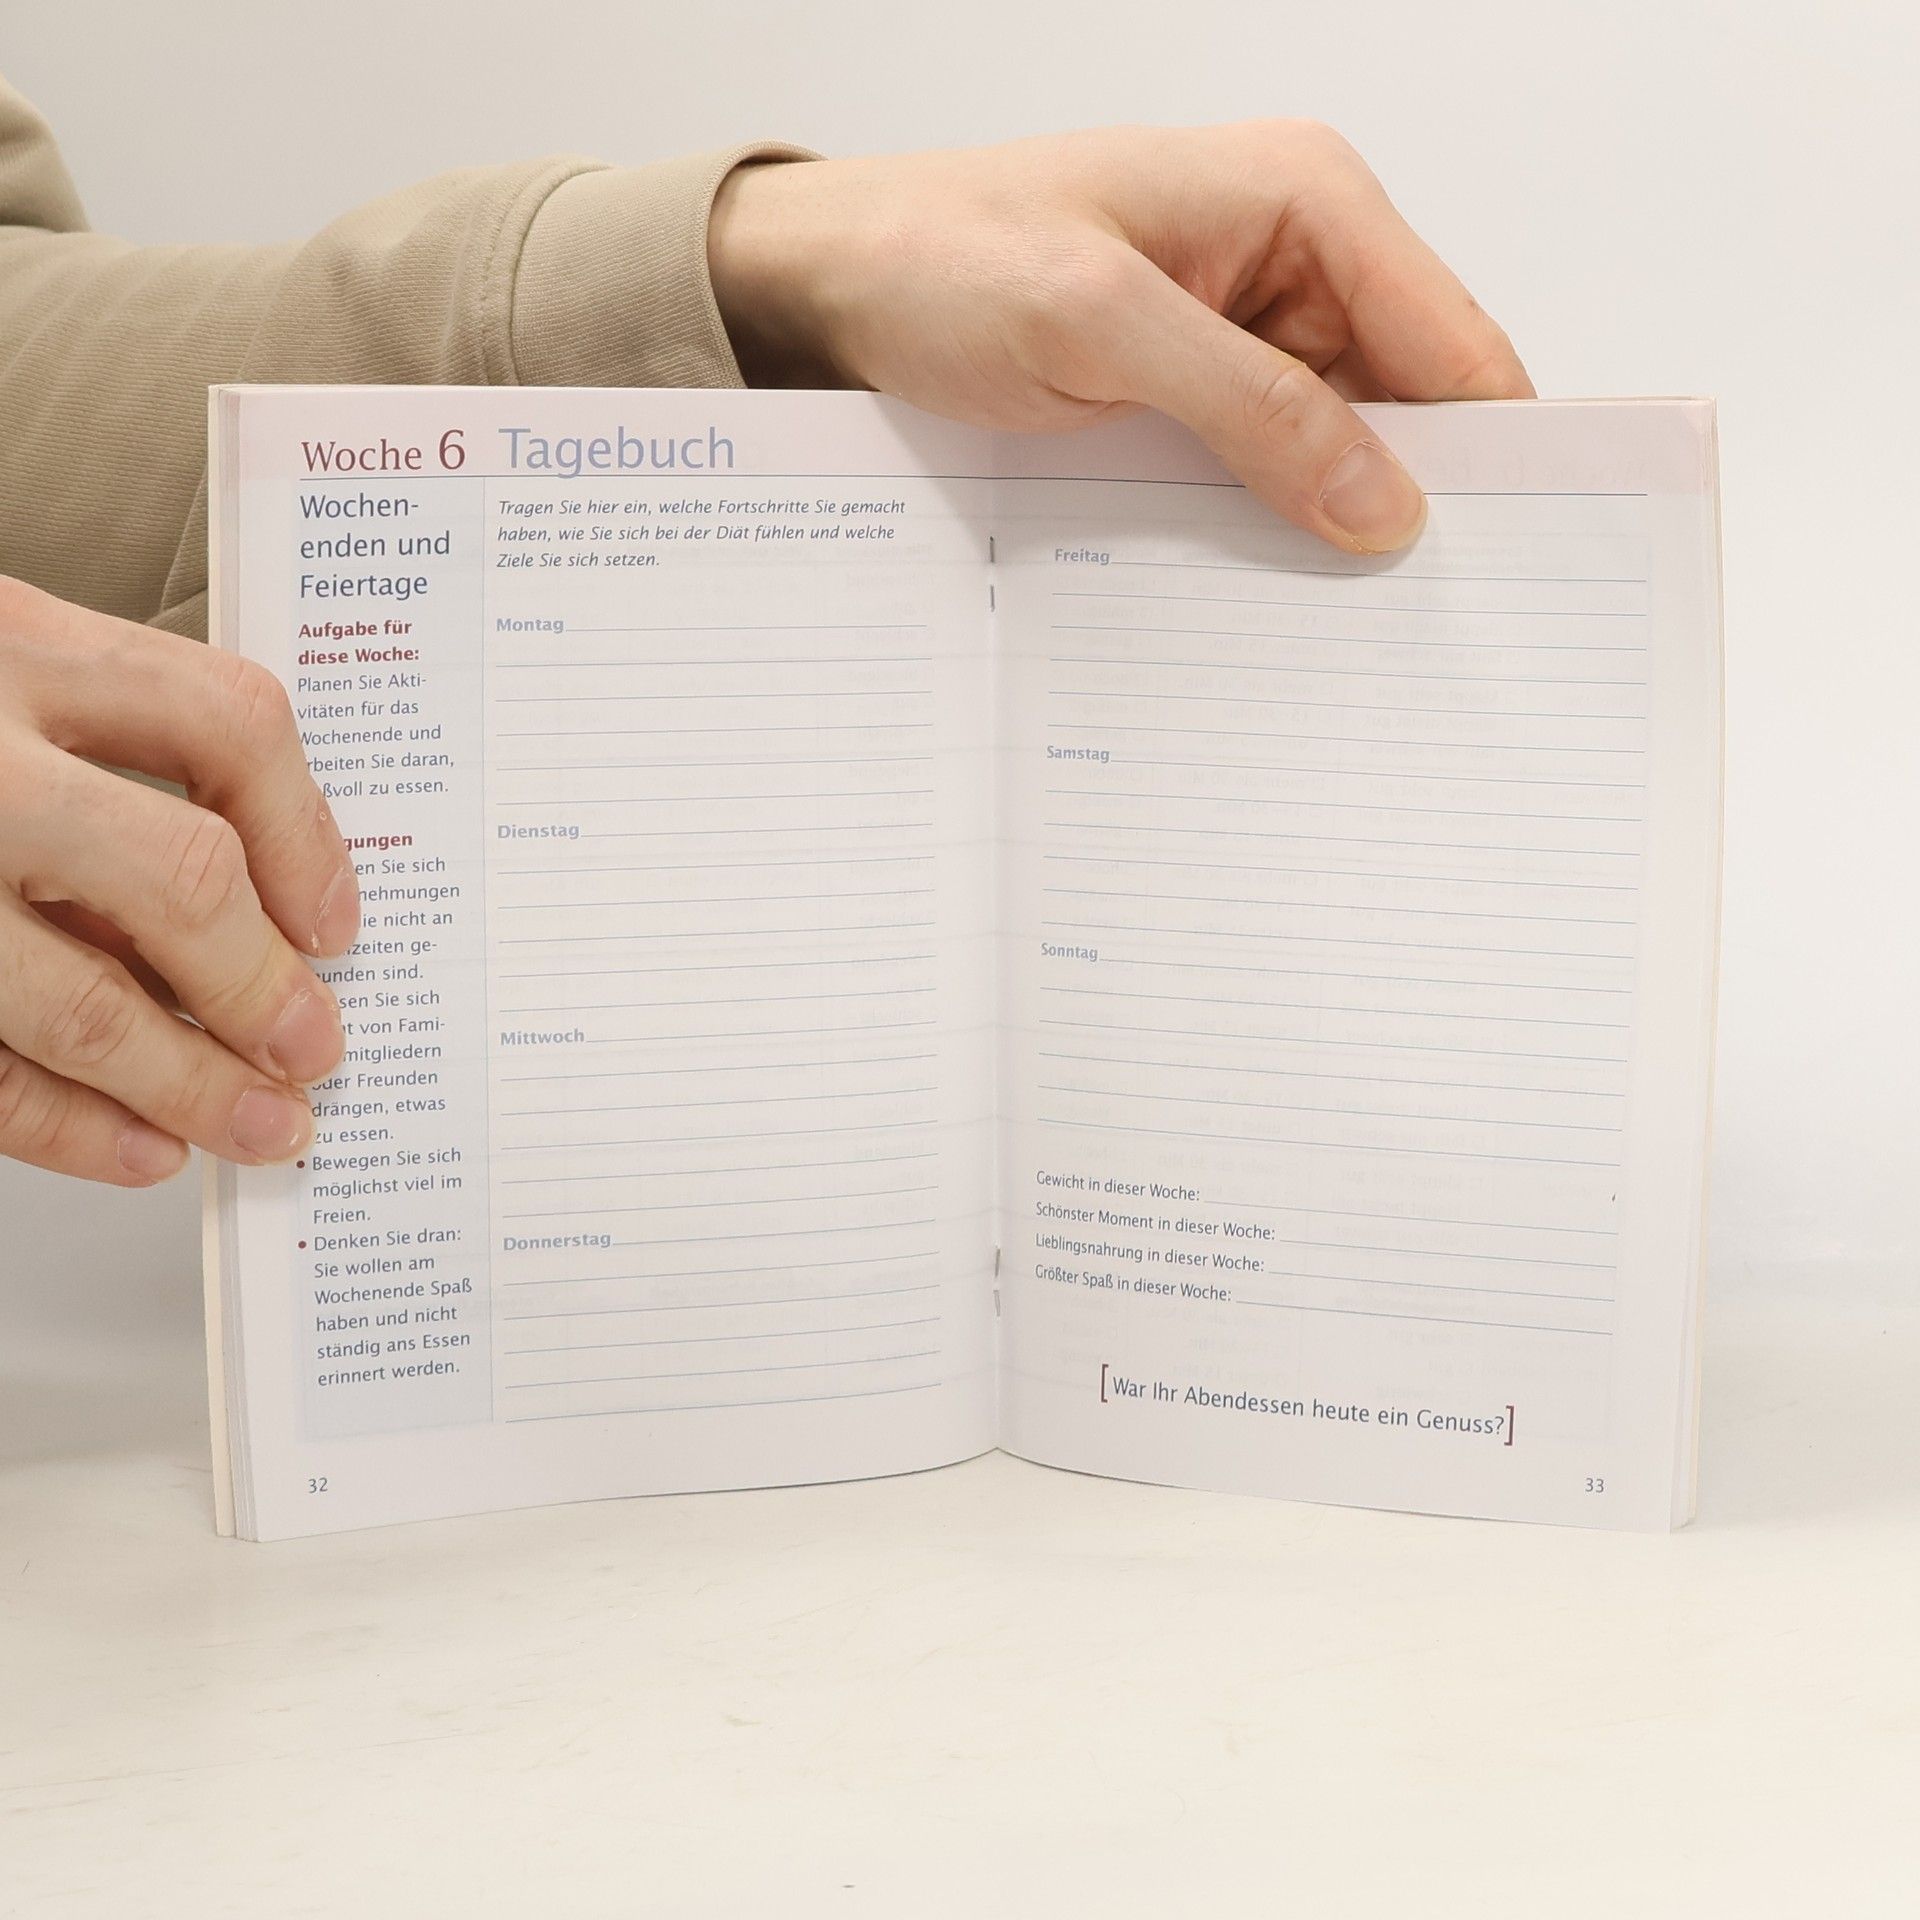 Woche 6 Tagebuch
Wochen-
enden und
Feiertage
Aufgabe für
diese Woche:
Planen Sie Akti-
vitäten für das
Wochenende und
rbeiten Sie daran,
ßvoll zu essen.
gungen
en Sie sich
nehmungen
ie nicht an
zeiten ge-
unden sind.
sen Sie sich
t von Fami-
mitgliedern
oder Freunden
drängen, etwas
zu essen.
• Bewegen Sie sich
möglichst viel im
Freien.
• Denken Sie dran:
Sie wollen am
Wochenende Spaß
haben und nicht
ständig ans Essen
erinnert werden.
Tragen Sie hier ein, welche Fortschritte Sie gemacht
haben, wie Sie sich bei der Diät fühlen und welche
Ziele Sie sich setzen.
Montag
Dienstag
Mittwoch
Donnerstag
32
Freitag
Samstag
Sonntag
Gewicht in dieser Woche:
Schönster Moment in dieser Woche:
Lieblingsnahrung in dieser Woche:
Größter Spaß in dieser Woche:
[War Ihr Abendessen heute ein Genuss?]
33